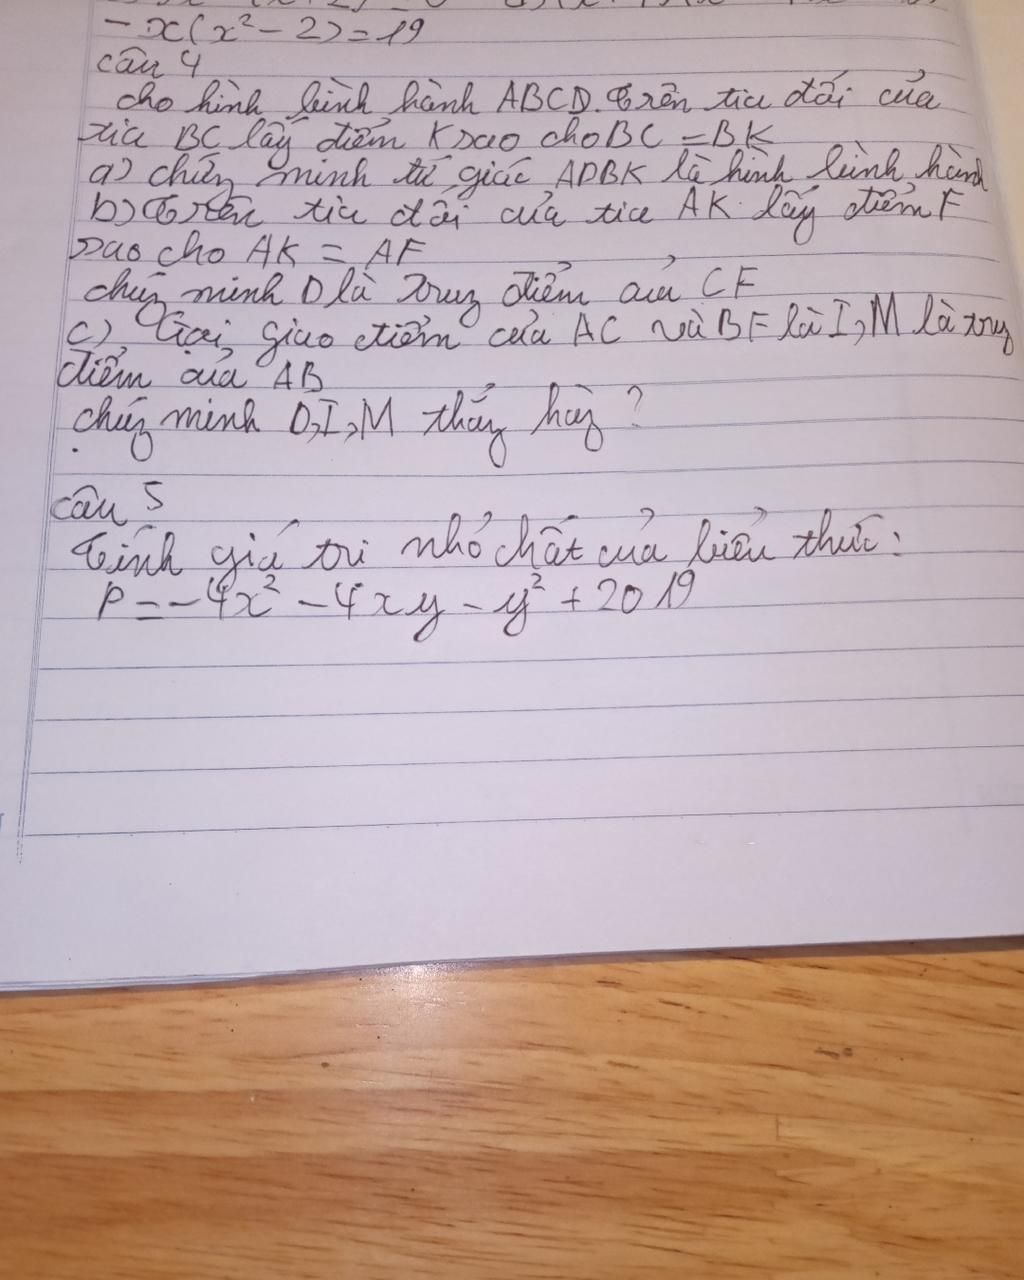 - x(x² - 2) = 19
câu 4
cho hình bình hành ABCD. Trên tia đối của
tia BC lấy điểm K sao cho BC = BK
a) chứng minh tứ giác ADBK là hình bình hành
b) Trên tia đối của tia AK lấy điểm F
sao cho AK = AF
chứng minh D là trung điểm của CF
c) Gọi giao điểm của AC và BF là I, M là trung
điểm của AB
chứng minh D, I, M thẳng hàng ?
câu 5
Tính giá trị nhỏ nhất của biểu thức :
P = -4x² - 4xy - y² + 2019